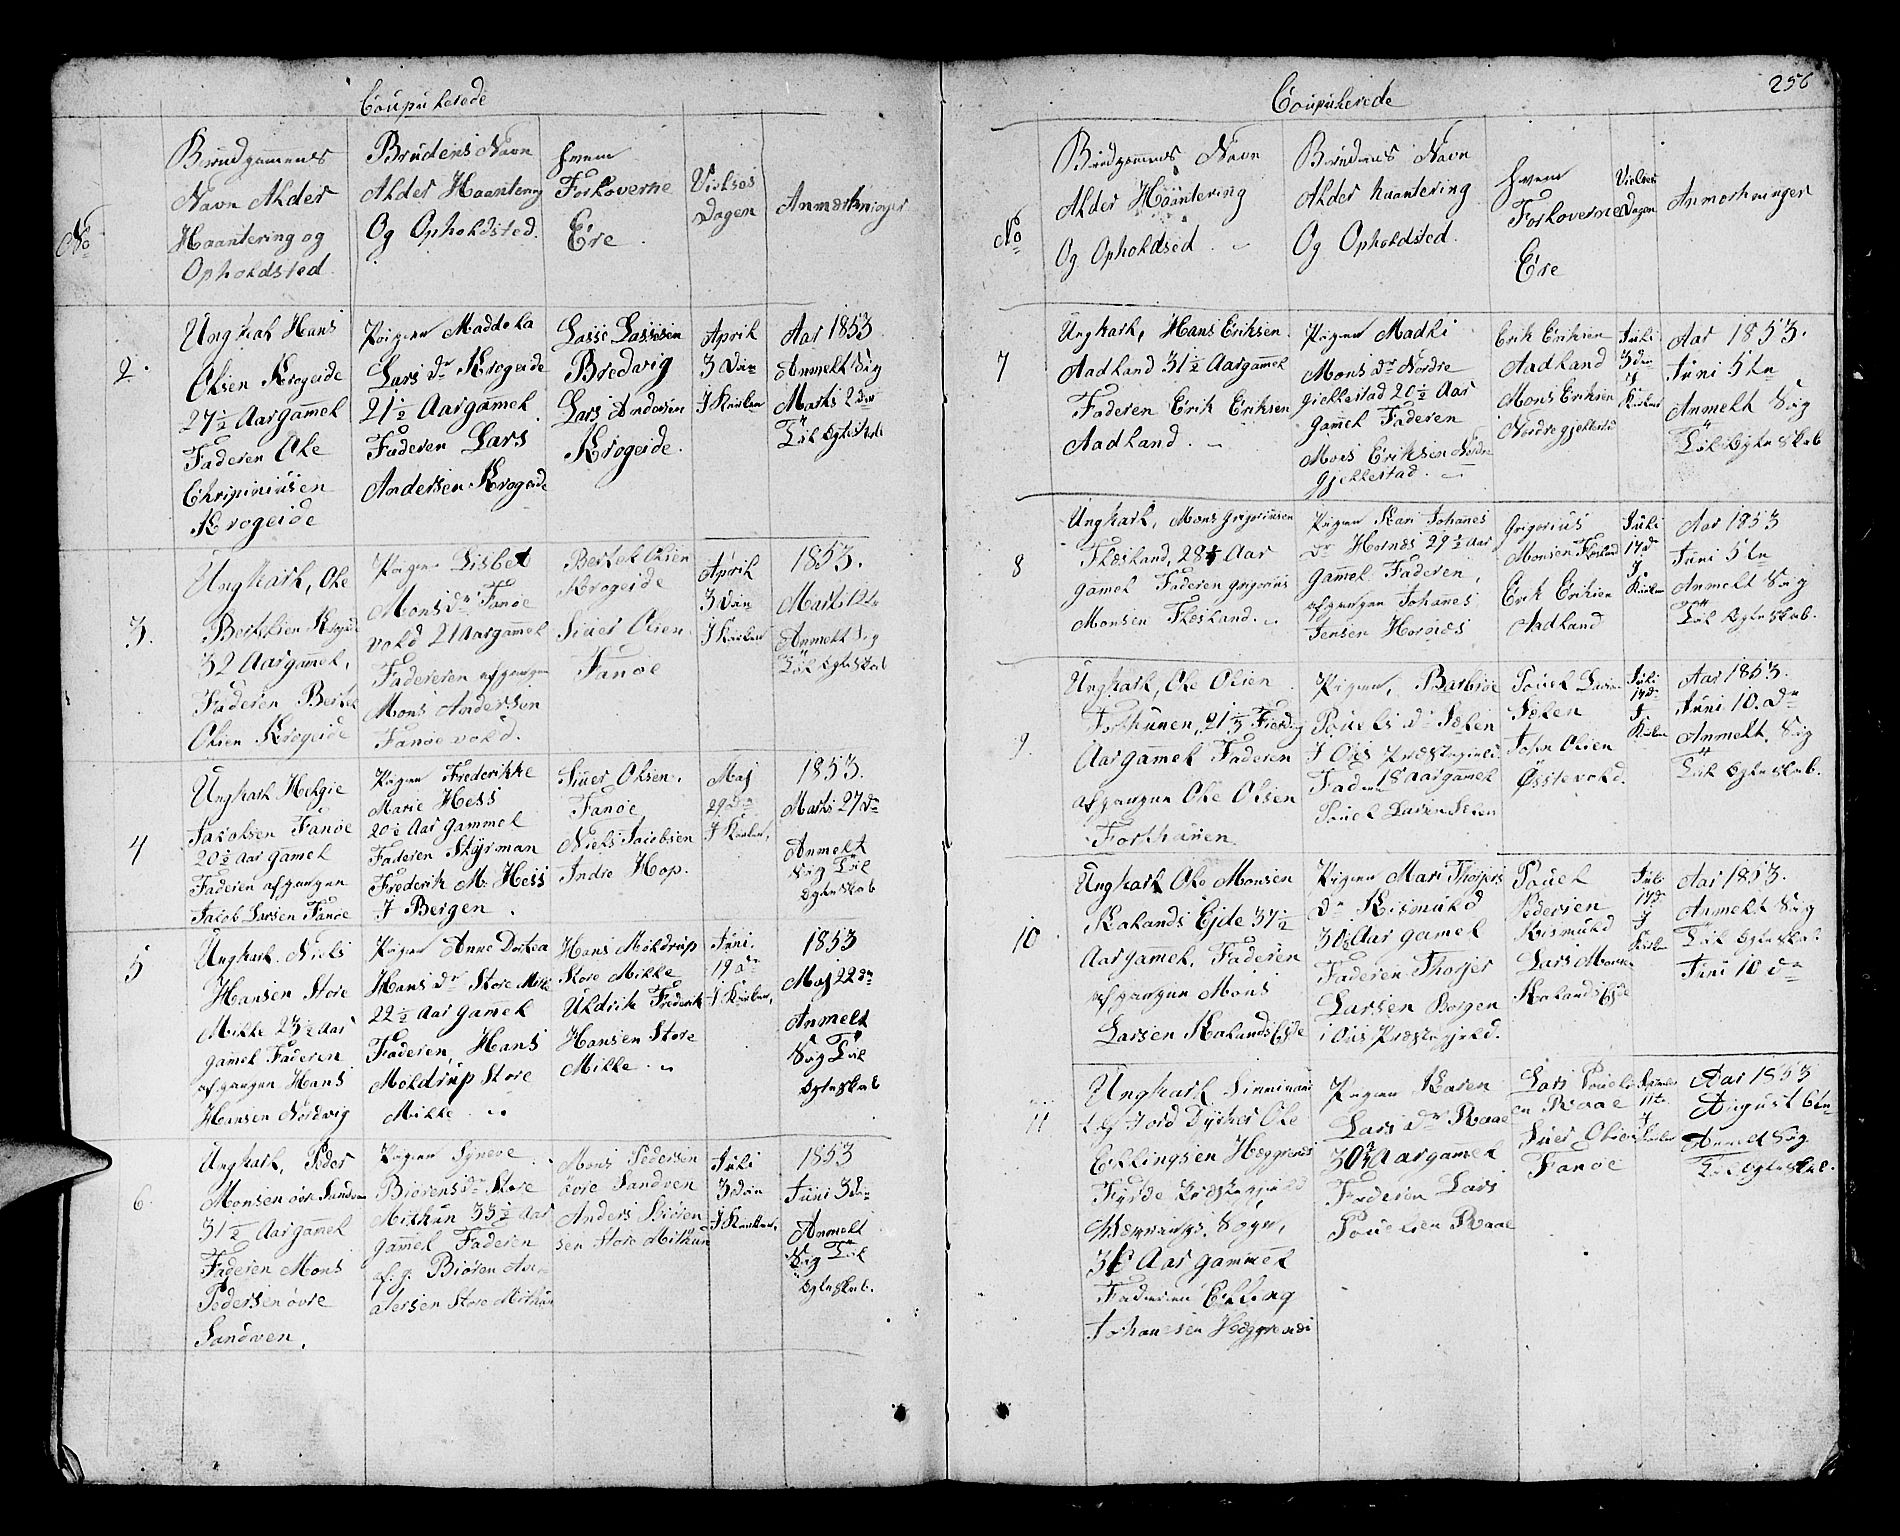 Coupulerede
No
Brudgamenes
Navn Alder
Haantering og
Opholdsted
Brudens Navn
Alder Haantering
Og Opholdsted.
hvem
Forloverne
Ere
Vielses
Dagen
Anmærkninger
2.
Ungkal Hans
Olsen Krogeide
27½ Aargamel
Faderen Ole
Krogeide
Pigen Maddela
Lars dr Krogeide
21½ Aargamel
Faderen Lars
Andersen Krogeide
Lasse Lassesen
Bredvig
Lars Andersen
Krogeide.
April
3 Din
I Kirken
Aar 1853
Anmelt Sig
Marts 2 den
Til Egteskab
3.
Ungkarl, Ole
Bertelsen Krogeide
32 Aargamel,
Faderen Bertel
Olsen Krogeide
Pigen Lisbet
Mons dr Fanøe
vold 21 Aargamel
Faderen afgangen
Mons Andersen
Fanøevold.
Bertel Olsen
Krogeide
Siver Olsen
Fanøe
April
3 Din
I Kirken
1853.
Marts 12te
Anmelt Sig
Til Egteskab
4
Ungkarl Helgie
Jacobsen Fanøe
20½ Aar gamel
Faderen afgangen
Jakob Larsen Fanøe
Pigen Frederikke
Marie Hess
20½ Aar gammel
Faderen Styrman
Frederik M. Hess
I Bergen.
Siver Olsen.
Fanøe
Niels Jacobsen
Indre Hop.
Maj
29 Da
I Kirken,
1853.
Marts 27 da
Anmelt
Sig Til
Egteskab
5
Ungkarl. Niels
Hansen Store
Milke 23½ Aar
gamel Faderen
afgangen Hans
Hansen Nordvig
Pigen Anne Dortea
Hans dr Store Milke
22½ Aar gamel
Faderen, Hans
Moldrup Store
Milke
Hans Moldrup
Store Milke
Uldrik Frederik
Hansen Store
Milke
Juni.
19 da
I Kirken,
1853
Maj 22 da
Anmelt
Sig Til
Egteskab
6.
Ungkarl, Peder
Monsen øvre Sandven
31½ Aargamel
Faderen Mons
Pedersen øvre
Sandven.
Pigen Syneve
Biørens dr Store
Milkun 33½ Aar
gamel Faderen
af. g. Biøren An-
dersen Store Milkun
Mons Pedersen
øvre Sandven
Anders Biøren
sen Store Milkun
Juli
3 Din
I Kirken,
1853
Juni 3 da
Anmelt
Sig Til
Egteskab.
Coupulerede
256
No
Brudgamens Navn
Alder Haantering
Og Opholdsed
Brudens Navn
Alder haantering
Og Opholdsted.
hvem
Forloverne
Ere
Vielses
Dagen
Anmerkninger
7
Ungkarl, Hans Eriksen
Aadland 31½ Aargamel
Faderen Erik Eriksen
Aadland.
Pigen Madli
Mons dr Nordre
gjellestad 20½ Aar
gamel Faderen
Mons Eriksen Nordre
gjellestad.
Erik Eriksen
Aadland
Mons Eriksen
Nordre gjellestad
Juli
3 da
I
Kirken
Aar 1853.
Juni 5 te
Anmelt Sig
Til Egteskab
8
Ungkarl, Mons Grigoriusen
Fleskland, 28½ Aar
gamel Faderen Grigorius
Monsen Fleskland.
Pigen Kari Johanes
dr Hornes 29½ Aar
gamel Faderen,
afgangen Johanes
Jensen Hornes
Grigorius
Monsen Flesland
Erik Eriksen
Aadland
Juli
17 da
I
Kirken
Aar 1853
Juni 5 te
Anmelt Sig
Til Egteskab.
9
Ungkarl, Ole Olsen
Aargamel Faderen
afgangen Ole Olsen
Pigen, Barbroe
Pouels dr Sælen
I Oes Præstegield
Faderen 18 aargamel
Pouel Larsen Sælen
Pouel Larsen
Sælen
John Olsen
Østevold.
Juli
17 da
I
Kirken
Aar 1853.
Juni 10. da
Anmelt Sig
Til Egteskab.
10
Ungkarl Ole Monsen
Kalands Ejde 37½
Aargamel, Faderen
afgangen Mons
Larsen Kalands Ejde
Pigen Mari Thorjers
dr Rismuld
30½ Aar gamel
Faderen Thorjer
Larsen Borgen
i Ois Præstegjeld.
Pouel
Pedersen
Rismuld
Lars Monsen
Kalands Ejde
Juli
17 da
I
Kirken
Aar 1853.
Anmelt Sig
Til Egteskab
Juni 10 da
11
Ungkarl
Jord Dyrker Ole
Ellingsen Heggrenes
Førde Prestegjeld
Sogn,
Aar gammel
Faderen Elling
Johanesen Heggrenes
Pigen Karen
Lars dr Raae
30½ Aargamel
Faderen Lars
Pouelsen Raae
Lars Pouels
en Raae
Siver Olsen
Fanøe
11te
I
Kirken
Aar 1853
August 6te
Anmelt Sig
Til Egteskab.